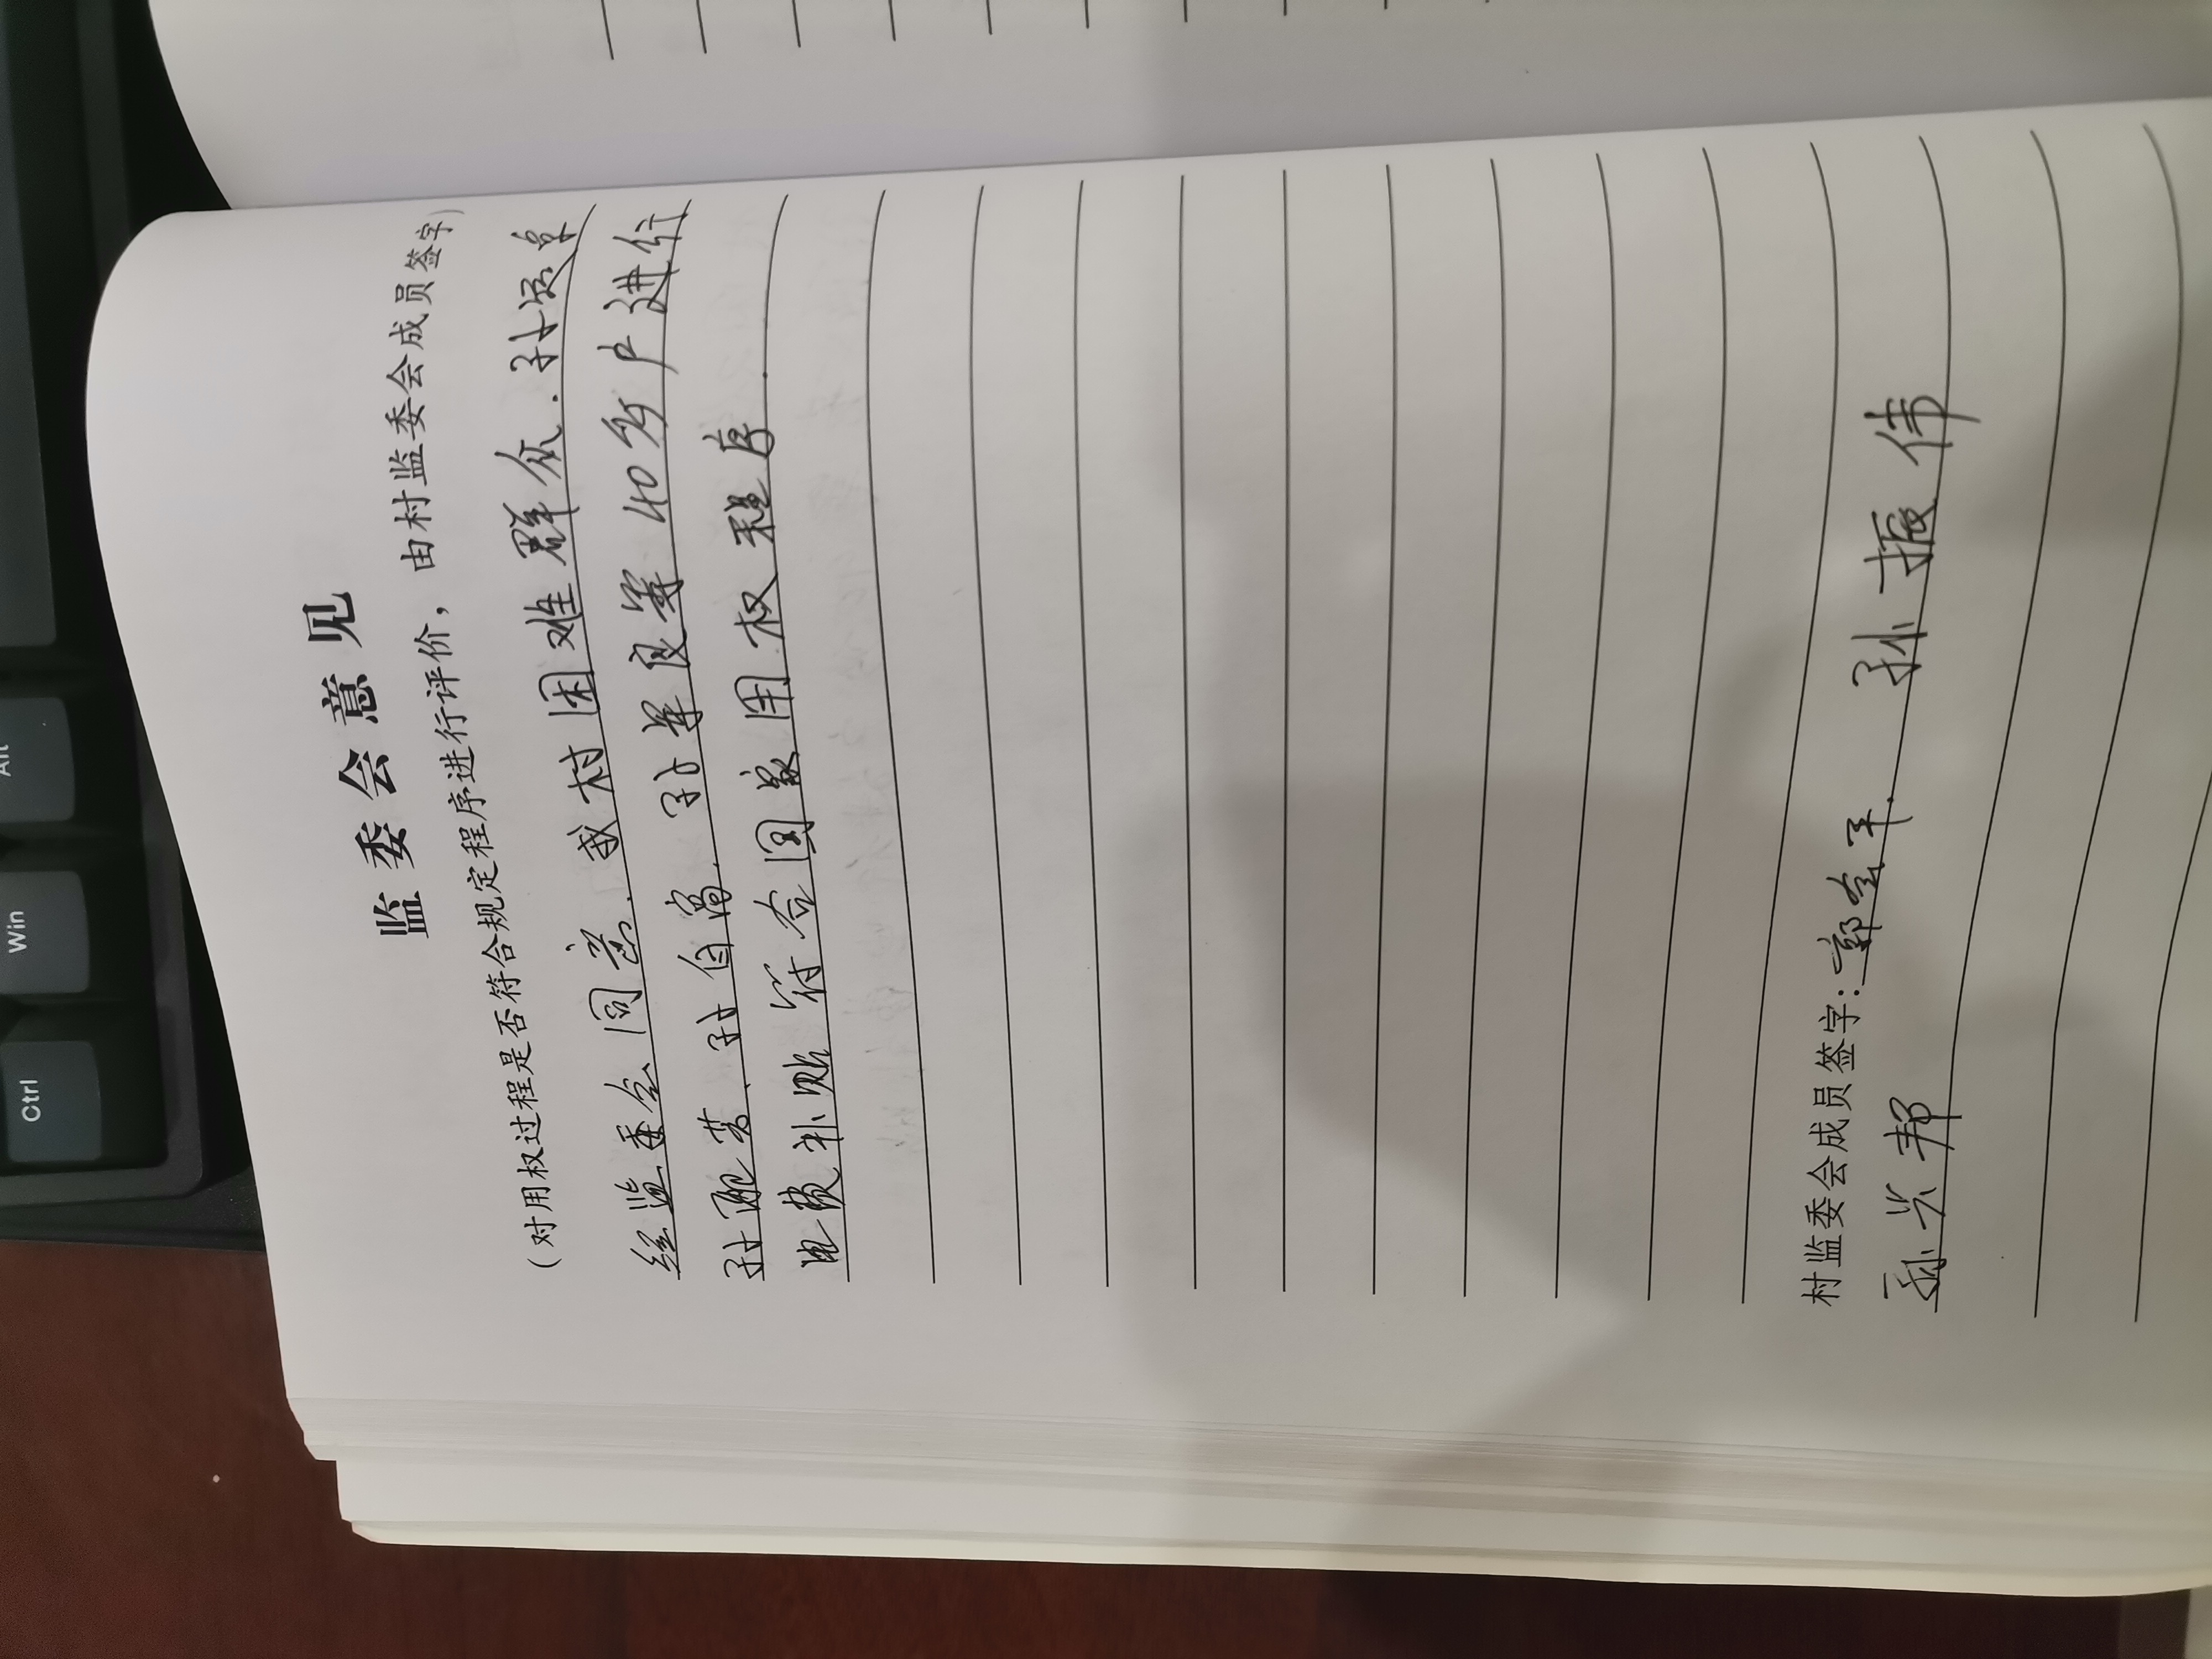 监委会意见
(对用权过程是否符合规定程序进行评价，由村监委会成员签字)
经监委会同意.我村困难群众.孙
孙 孙自富.孙 良等40多户进行
电费补贴 符合国家用权程序.
村监委会成员签字:郭金平. 孙振伟
孙兴邦
Alt
Win
Ctrl